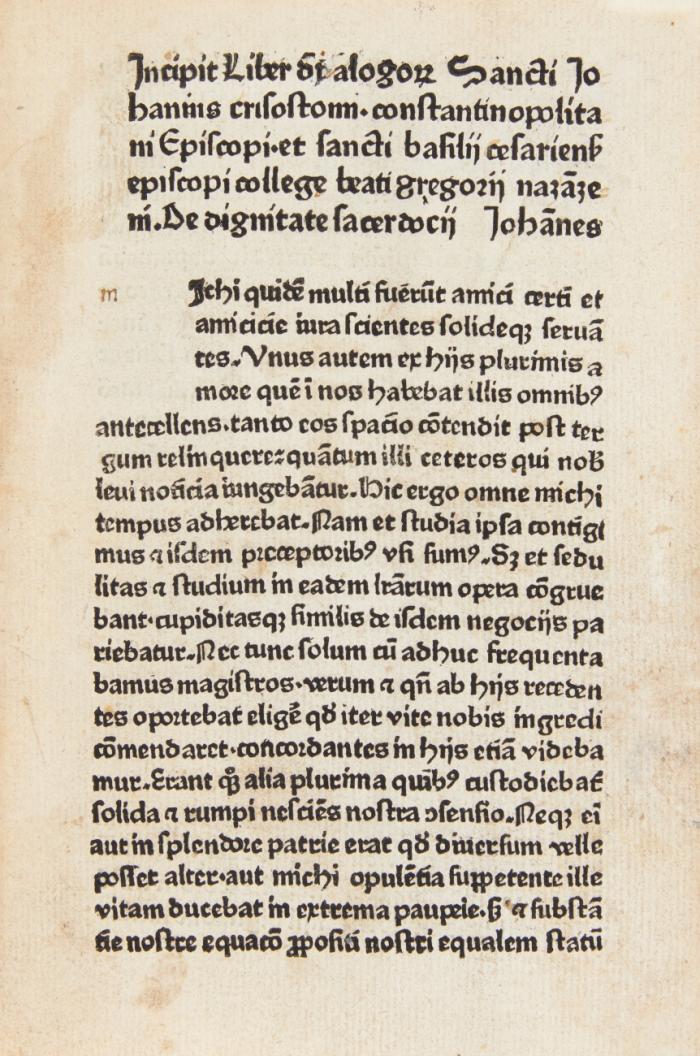 Incipit Liber dyalogoꝝ Sancti Jo
hannis crisostomi. constantinopolita
ni Episcopi. et sancti basilij cesariens̄
episcopi college beati gregorij nazāze
ni. De dignitate sacerdocij Johānes
m Ichi quidē multi fuerūt amici certi et
amicicie iura scientes solideqꝫ seruā
tes. Vnus autem ex hijs plurimis a
more quē ī nos habebat illis omnibꝰ
antecellens. tanto eos spacio cōtendit post ter
gum relinquere: quātum illi ceteros qui nob̄
leui noticia iungebātur. Hic ergo omne michi
tempus adherebat. Nam et studia ipsa contigi
mus ⁊ iisdem preceptoribꝰ vsi sumꝰ. Sꝫ et sedu
litas ⁊ studium in eadem lrārum opera cōgrue
bant. cupiditasqꝫ similis de iisdem negocijs pa
riebatur. Nec tunc solum cū adhuc frequenta
bamus magistros. verum ⁊ qn̄ ab hijs receden
tes oportebat eligē qd̄ iter vite nobis ingredi
cōmendaret. concordantes in hijs etiā videba
mur. Erant qꝫ alia plurima quibꝰ custodiebat̄
solida ⁊ rumpi nesciēs nostra ↄsensio. Neqꝫ ei̅
aut in splendore patrie erat qd̄ diuersum velle
posset alter. aut michi opulētia suppetente ille
vitam ducebat in extrema paupeie. s̄ ⁊ substā
tie nostre equacō ꝓpositi nostri equalem statū